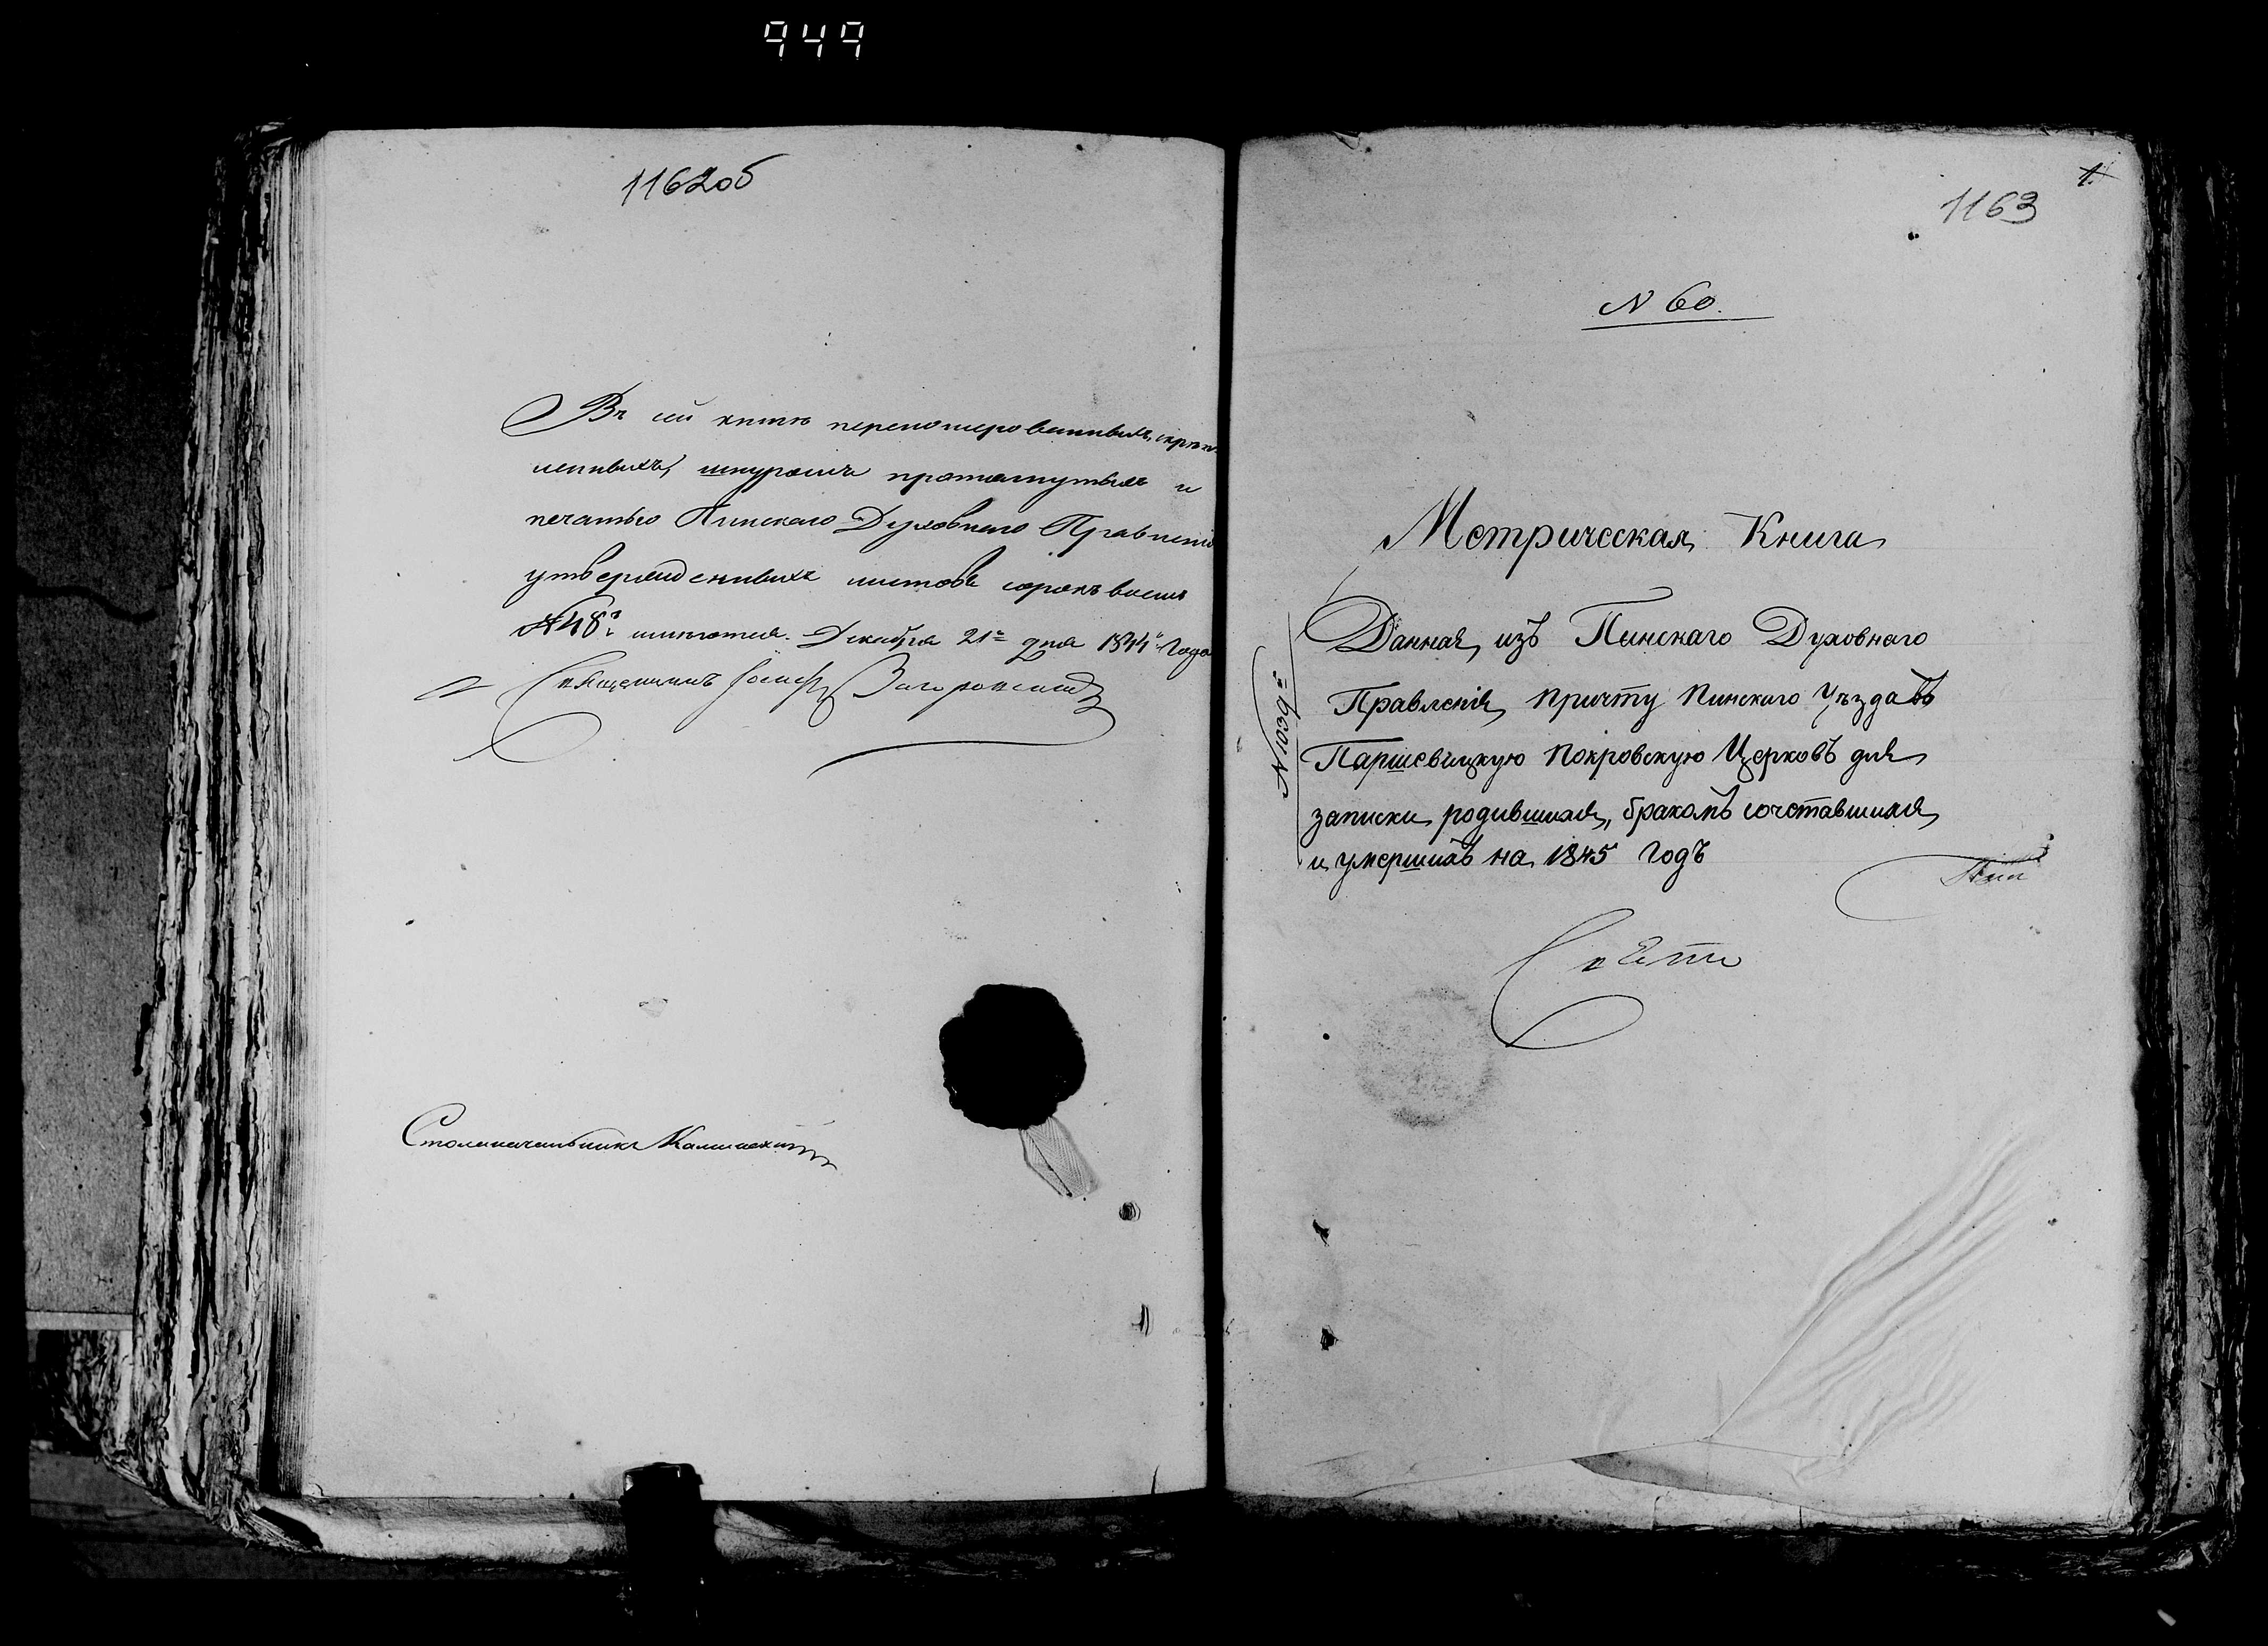 949
1162об
Въ сей книге перенумерованныхъ, скреп
ленныхъ, шнуромъ протянутыхъ и
печатью Пинскаго Духовнаго Правленія
утвержденныхъ листовъ сорокъ восемь
№ 48. имѣются. Декабря 21 дня 1844 Года
Священникъ Іосифъ
Столоначальникъ
1.
1163
N 60.
Метрическая Книга
Данная изъ Пинскаго Духовнаго
Правленія, причту Пинскаго Уѣзда въ
Паршевицкую Покровскую Церковъ для
записки родившихся, бракомъ сочетавшихся
и умершихъ на 1845 Годъ
N 1039